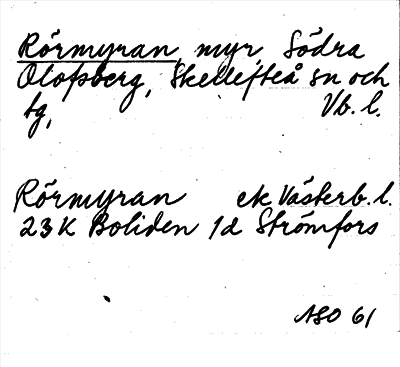 Rörmyran, myr, Södra
Olofsberg, Skellefteå sn och
tg, Vb. l.
Rörmyran ek Västerb. l.
23K Boliden 1d Strömfors
ASO 61